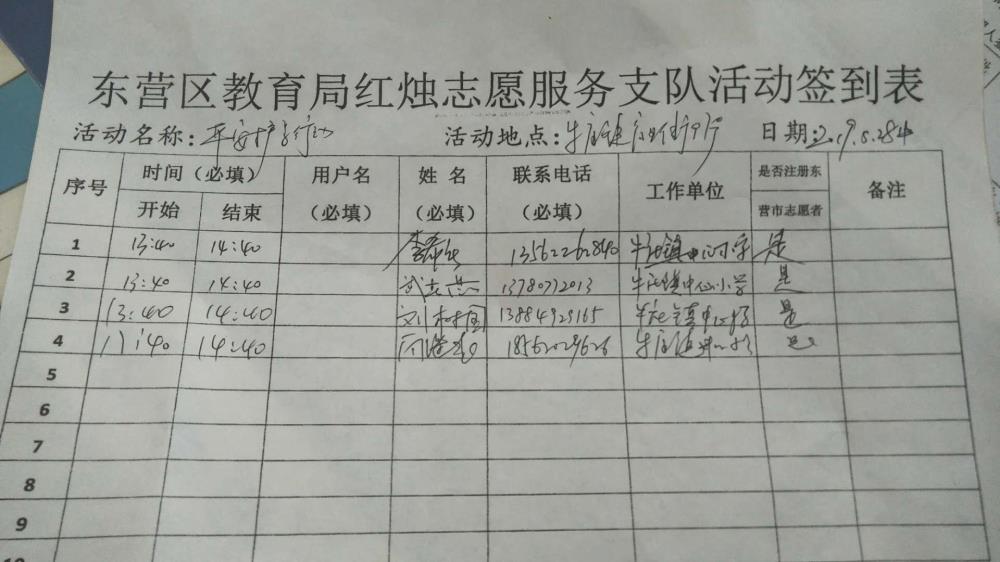 东营区教育局红烛志愿服务支队活动签到表
活动名称: 平安护 活动地点: 牛庄镇 日期: 2019.5.28
序号 时间（必填） 用户名（必填） 姓名（必填） 联系电话（必填） 工作单位 是否注册东营市志愿者 备注
开始 结束
1 13:40 14:40 13562262840 牛庄镇中心小学 是
2 13:40 14:40 武志 13780772013 牛庄镇中心小学 是
3 13:40 14:40 刘树国 13884929165 牛庄镇中心 是
4 13:40 14:40 18562029626 牛庄镇 是
5
6
7
8
9
10